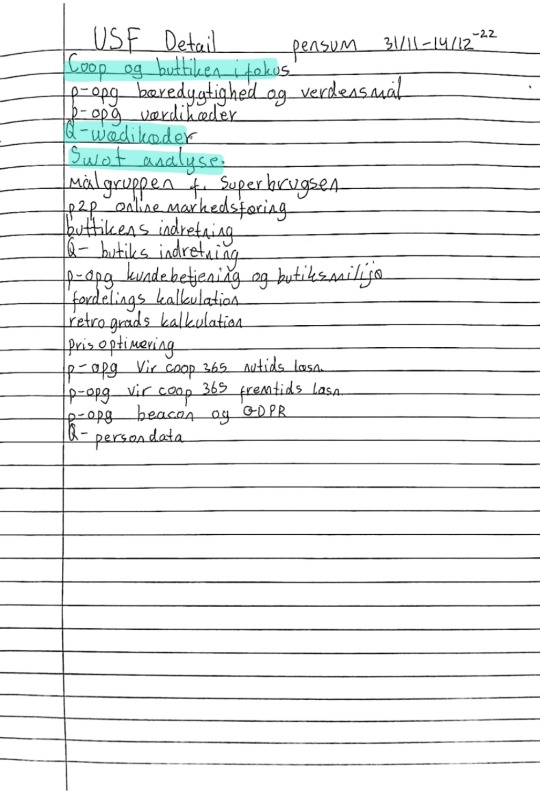 USF Detail pensum 31/11-14/12-22
Coop og buttiken i fokus
p-opg bæredygtighed og verdensmål
p-opg værdikæder
Q-wædikæder
Swot analyse.
målgruppen f. Superbrugsen
p2p online markedsføring
buttikens indretning
Q- butiks indretning
p-opg kundebetjening og butiksmilijø
fordelings kalkulation
retrograds kalkulation
prisoptimering
p-opg Vir coop 365 nutids løsn.
p-opg vir coop 365 fremtids løsn.
p-opg beacon og GDPR
Q- persondata